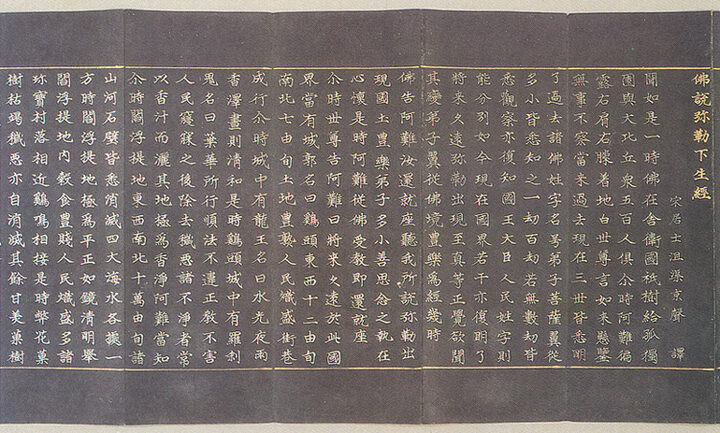 佛說弥勒下生經
宋居士沮渠京聲 譯
聞如是一時佛在舍衛國祇樹給孤獨
園與大比丘衆五百人俱尒時阿難徧
露右肩右膝着地白世尊言如来懸鑒
無事不察當来過去現在三世皆悉明
了過去諸佛姓字名号弟子菩薩翼從
多小皆悉知之一劫百劫若無數劫皆
悉觀察亦復知國王大臣人民姓字則
能分別如今現在國界若干亦復明了
將来久遠弥勒出現至真等正覺欲聞
其變弟子翼從佛境豊樂爲經幾時
佛告阿難汝還就座聽我所說弥勒出
現國土豊樂弟子多小善思念之執在
心懷是時阿難從佛受教即還就座
尒時世尊告阿難曰將来久遠於此國
界當有城郭名曰鷄頭東西十二由旬
南北七由旬土地豊熟人民熾盛街巷
成行尒時城中有龍王名曰水光夜雨
香澤晝則清和是時鷄頭城中有羅刹
鬼名曰葉華所行順法不違正教不害
人民寢寐之後除去穢惡諸不淨者常
以香汁而灑其地極爲香淨阿難當知
尒時閻浮提地東西南北十萬由旬諸
山河石壁皆悉消滅四大海水各據一
方時閻浮提地極爲平正如鏡清明擧
閻浮提地內穀食豊賤人民熾盛多諸
珎寶村落相近鷄鳴相接是時弊花菓
樹枯竭穢惡亦自消滅其餘甘美菓樹